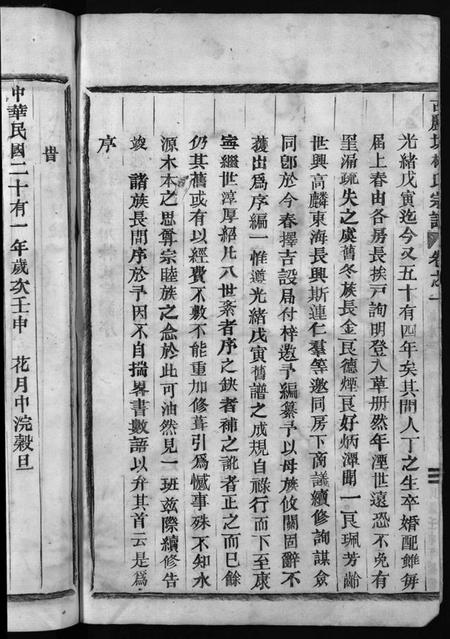 林氏宗譜 卷之一
光緒戊寅迄今又五十有四年矣其間人丁之生卒婚配雖每
屆上春由各房長挨戸詢明登入草册然年湮世遠恐不免有
罣漏疏失之虞舊冬族長金艮德煙艮好炳潭聞一艮珮芳齡
世興高麟東海長興斯連仁羣等邀同房下商議續修詢謀僉
同卽於今春擇吉設局付梓邀予編纂予以母族攸關固辭不
獲出爲序編一惟遵光緒戊寅舊譜之成規自祿行而下至康
寧繼世淳厚紹凡八世紊者序之缺者補之訛者正之而已餘
仍其舊或有以經費不敷不能重加修葺引爲憾事殊不知水
源木本之思尊宗睦族之念於此可油然見一班茲際續修告
竣 諸族長問序於予因不自揣畧書數語以弁其首云是爲
序
昔
中華民國二十有一年歲次壬申 花月中浣穀旦